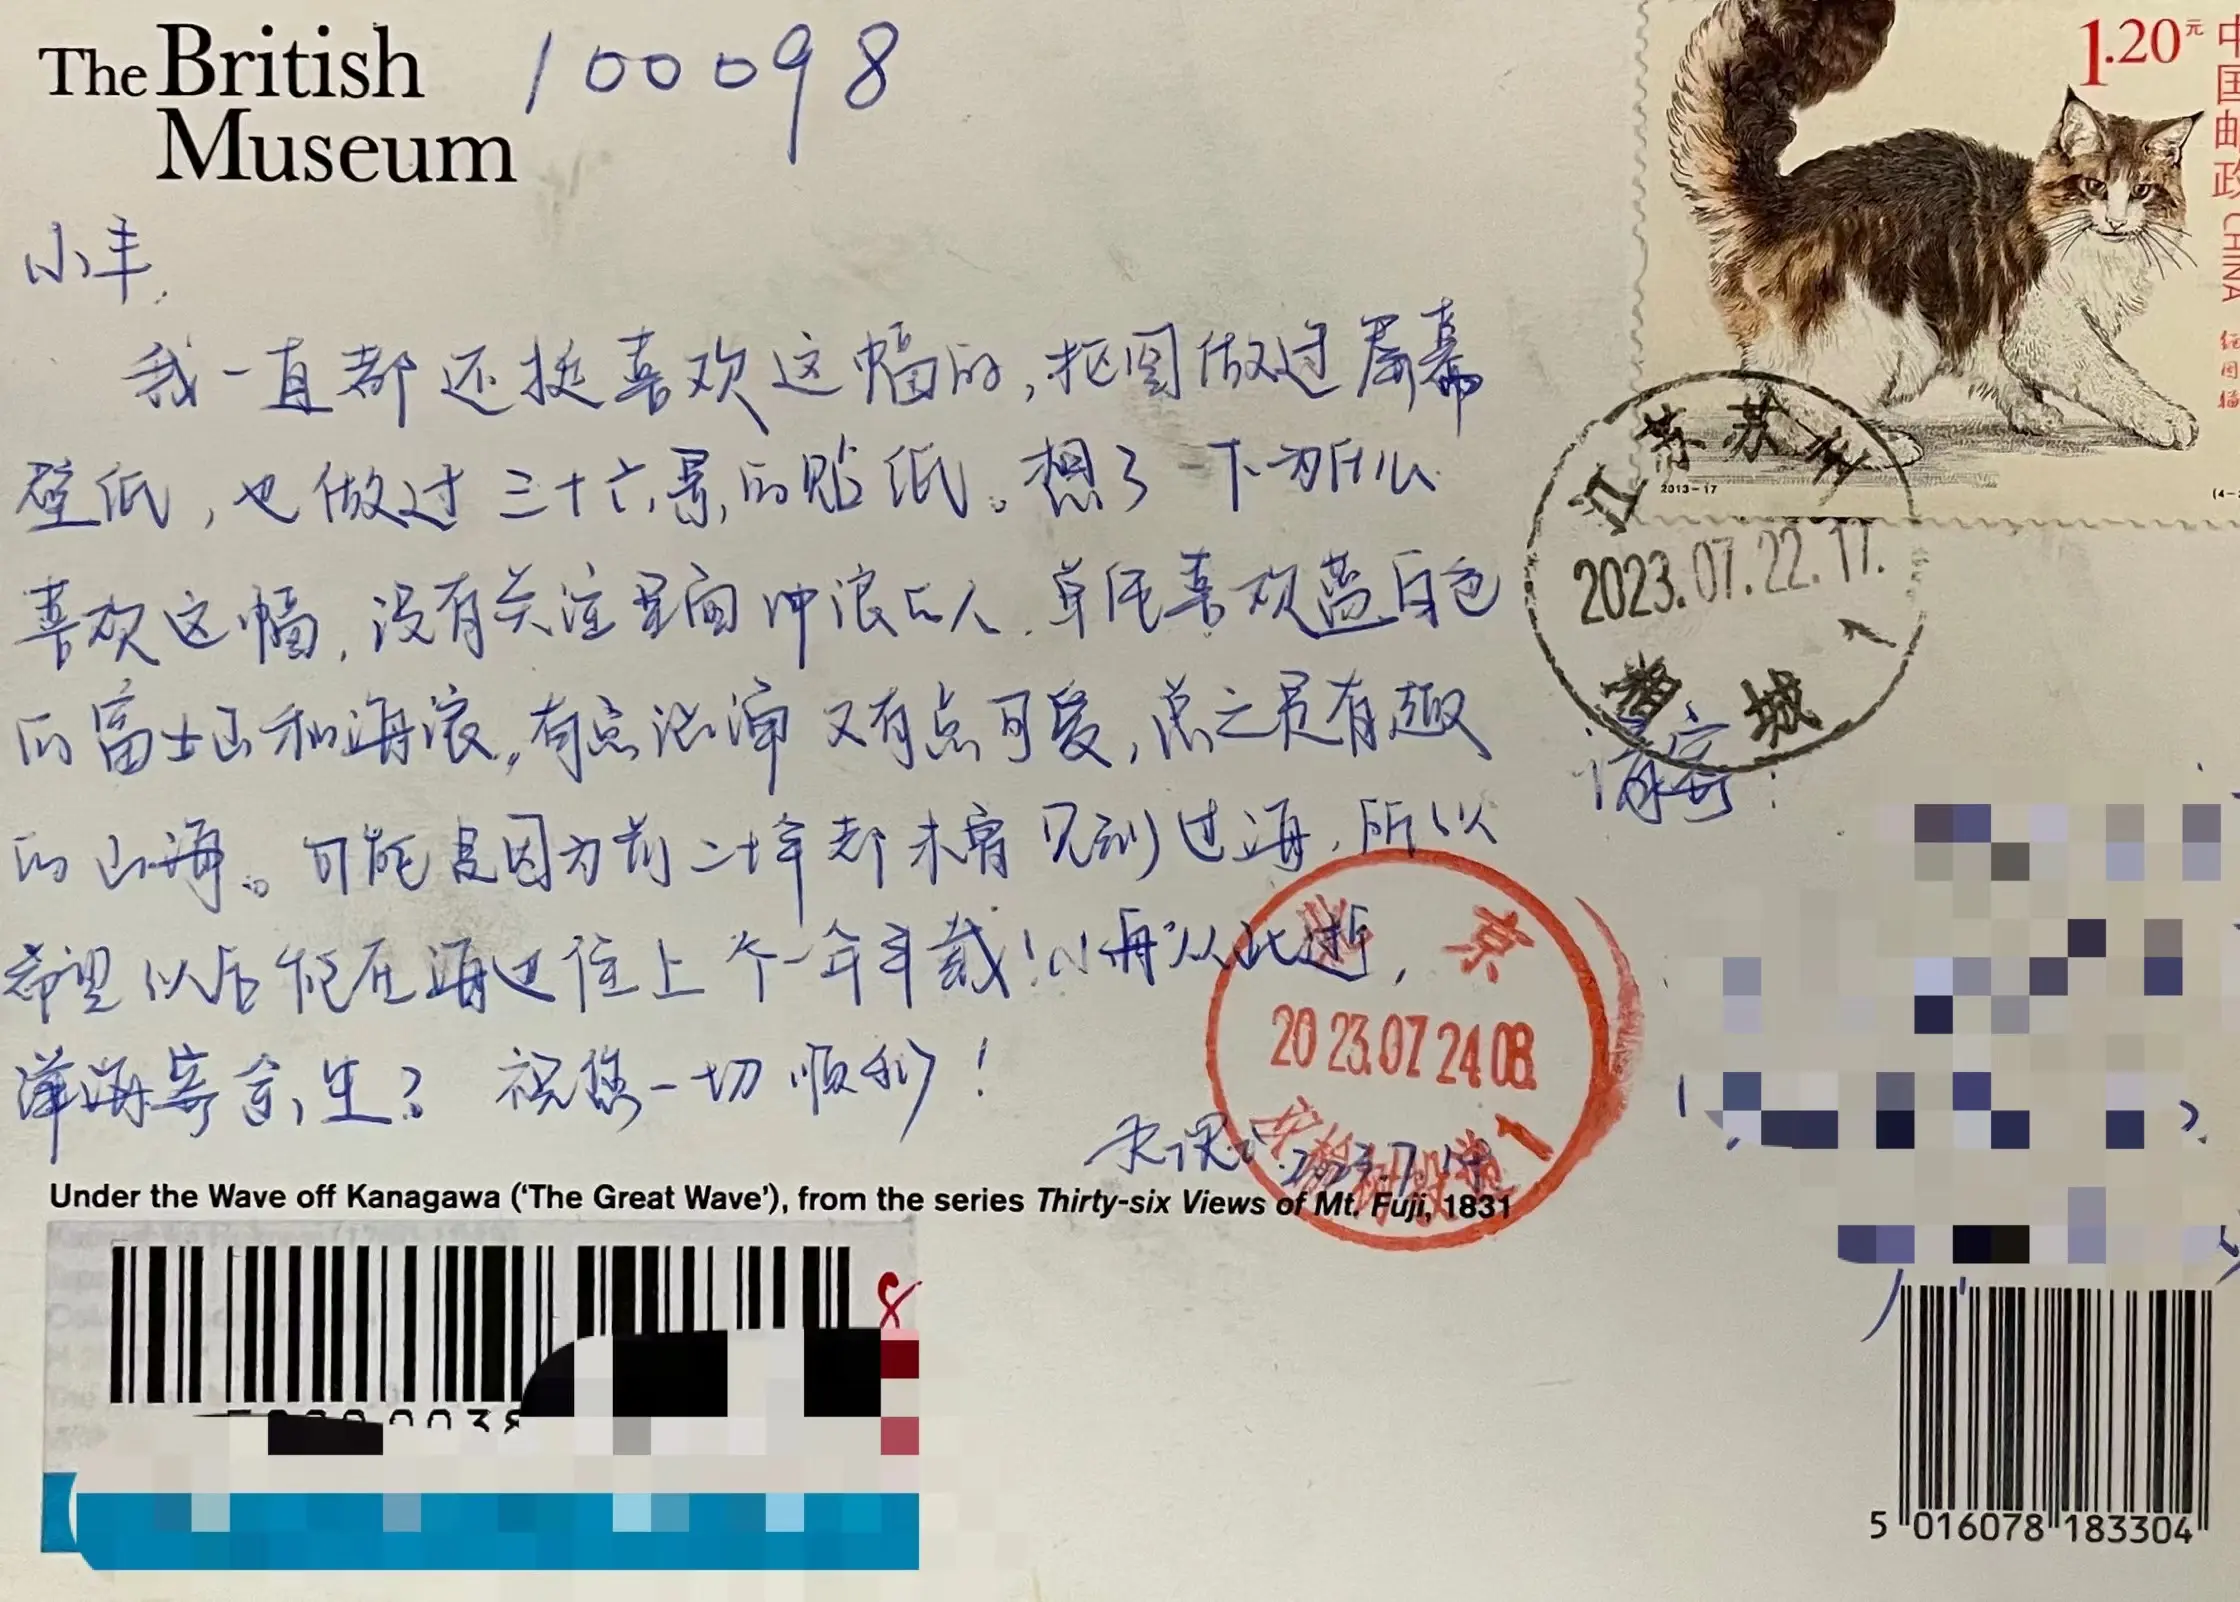 The British
Museum
100098
1.20元
中国邮政
CHINA
2013-17
(4-
小丰,
我一直都还挺喜欢这幅的,抠图做过屏幕
壁纸,也做过三十六景的贴纸。想了一下为什么
喜欢这幅,没有关注里面冲浪的人,单纯喜欢蓝白色
的富士山和海浪,有点浪漫又有点可爱,总之是有趣
的山海。可能是因为前二十年都未曾见到过海,所以
希望以后能在海边住上个一年半载!小舟从此逝,
江海寄余生? 祝你一切顺利!
2023.7.19
江苏苏州
2023.07.22.17.
相城
请寄:
北京
2023.07.24.08.
Under the Wave off Kanagawa (‘The Great Wave’), from the series Thirty-six Views of Mt. Fuji, 1831
8
5 016078 183304